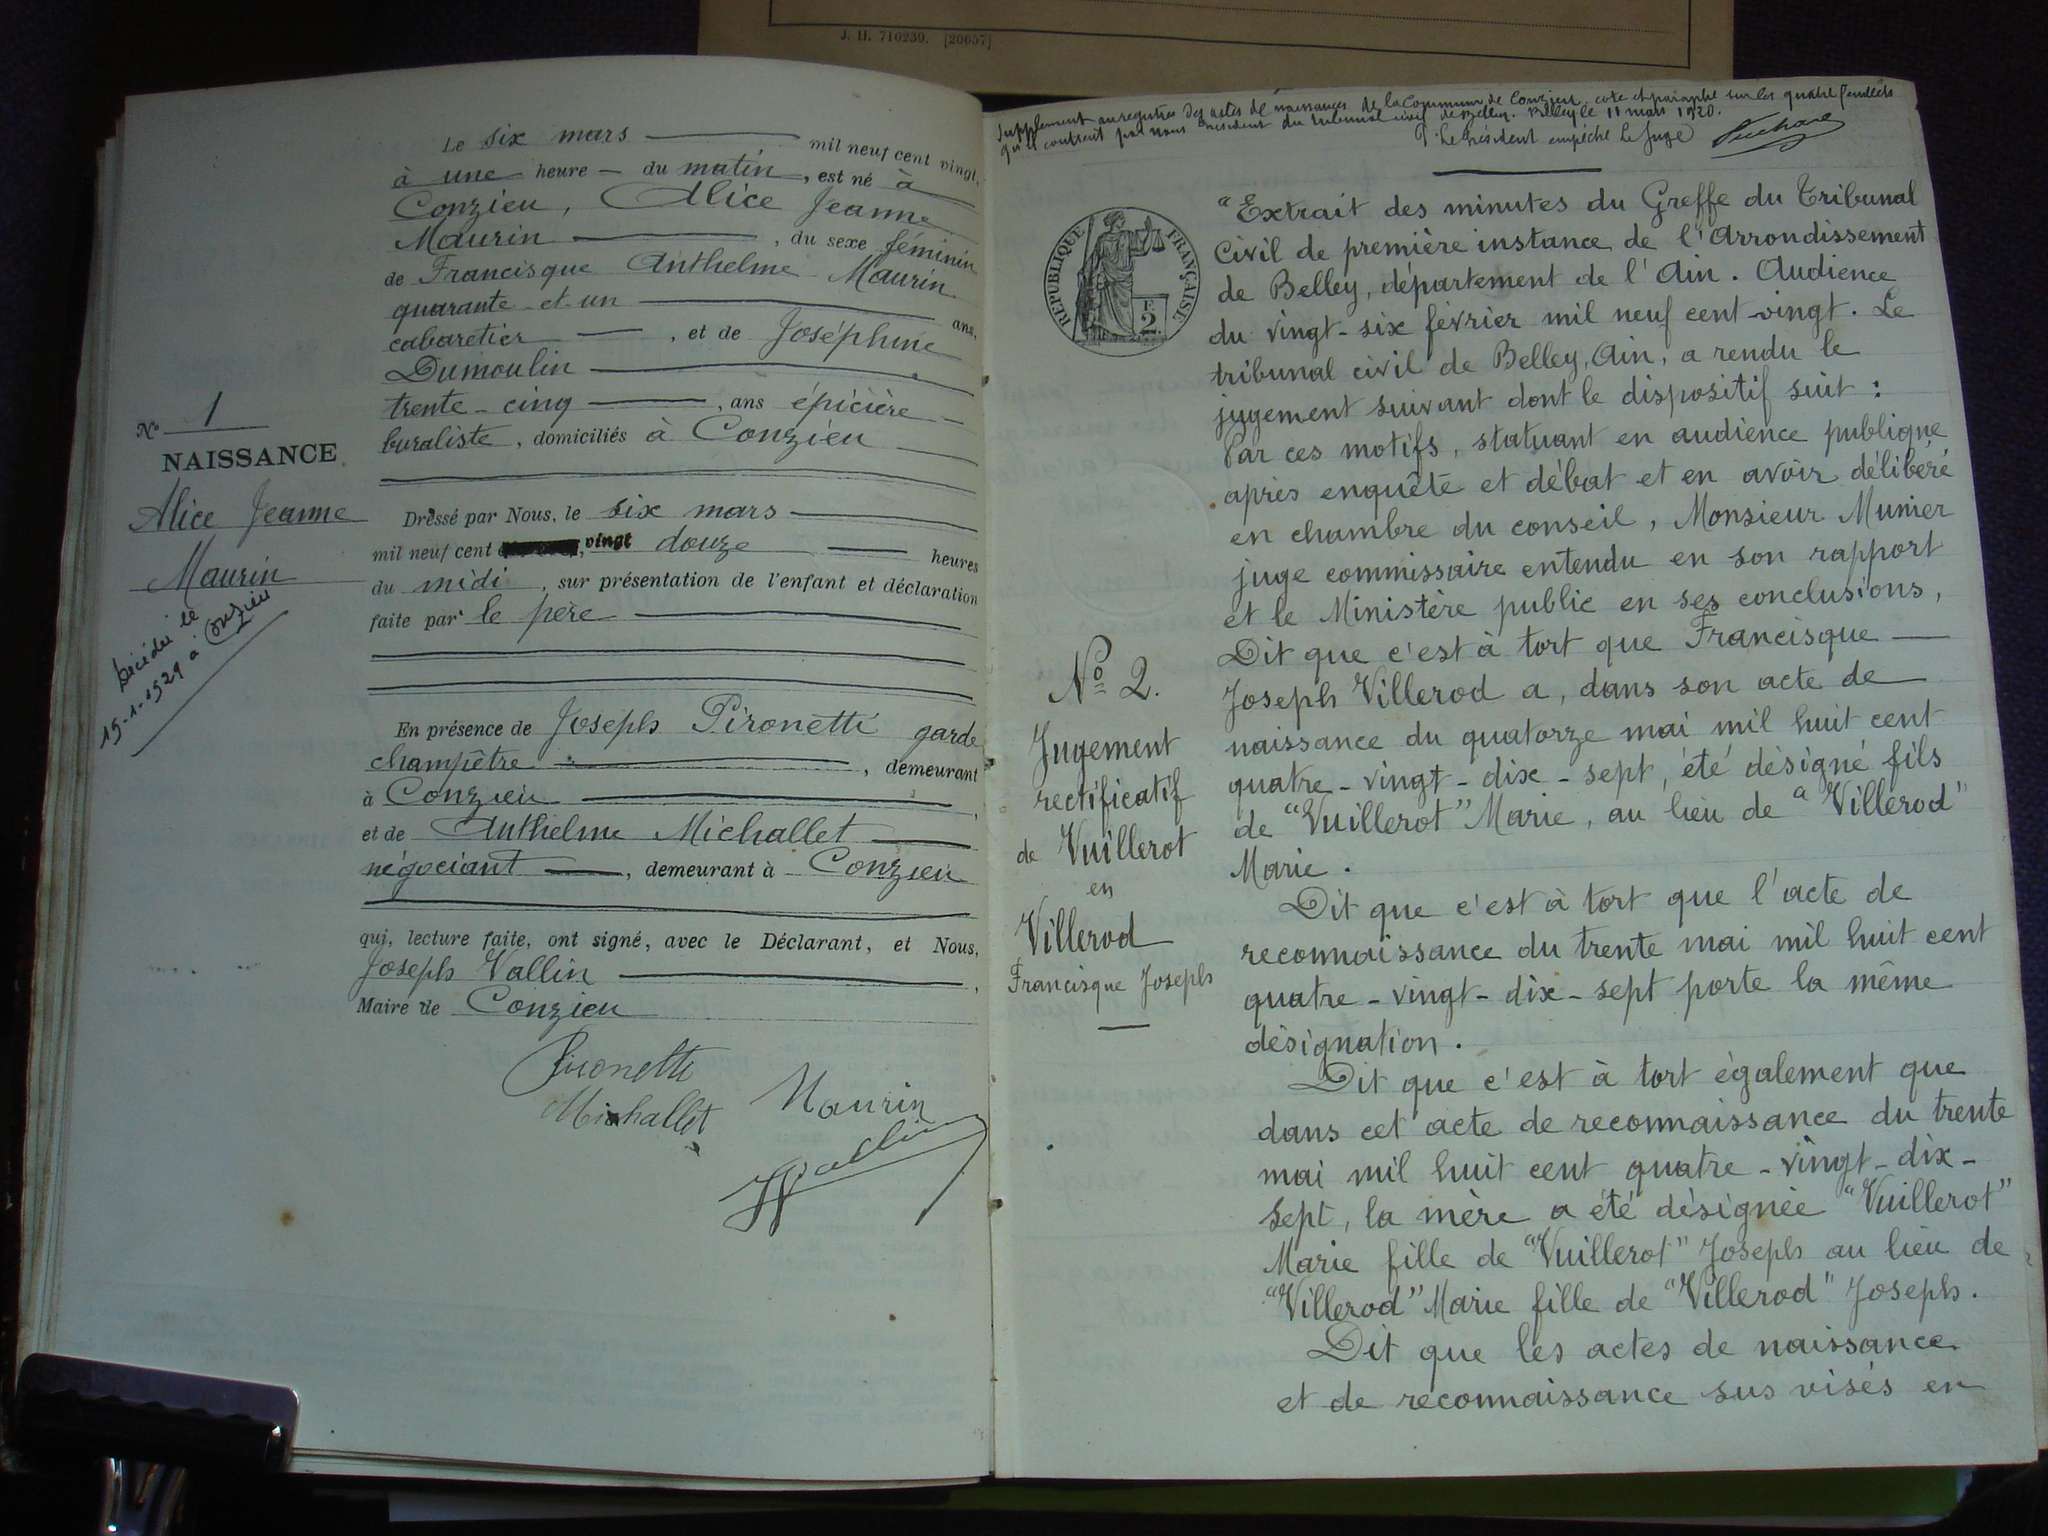 J. H. 710239. [20057]
Le six mars mil neuf cent vingt,
à une heure du matin, est né à
Conzieu, Alice Jeanne
Maurin, du sexe féminin
de Francisque Anthelme Maurin
quarante et un ans,
cabaretier, et de Joséphine
Dumoulin
trente-cinq, ans épicière
buraliste, domiciliés à Conzieu
N° 1
NAISSANCE
Alice Jeanne
Maurin
Décédée le
15-1-1929 à Conzieu
Dressé par Nous, le six mars
mil neuf cent vingt douze heures
du midi, sur présentation de l'enfant et déclaration
faite par le père
En présence de Joseph Pironetti garde
champêtre, demeurant
à Conzieu,
et de Anthelme Michallet
négociant, demeurant à Conzieu
qui, lecture faite, ont signé, avec le Déclarant, et Nous,
Joseph Vallin,
Maire de Conzieu
Pironetti
Michallet Maurin
JVallin
Supplément au registre des actes de naissances de la Commune de Conzieu, coté et paraphé sur les quatre feuillets
qu'il contient par nous Président du tribunal civil de Belley. Belley le 11 mars 1920.
P. Le Président empêché Le Juge
RÉPUBLIQUE FRANÇAISE
2
"Extrait des minutes du Greffe du Tribunal
Civil de première instance de l'Arrondissement
de Belley, département de l'Ain. Audience
du vingt-six février mil neuf cent-vingt. Le
tribunal civil de Belley, Ain, a rendu le
jugement suivant dont le dispositif suit :
Par ces motifs, statuant en audience publique
après enquête et débat et en avoir délibéré
en chambre du conseil, Monsieur Munier
juge commissaire entendu en son rapport
et le Ministère public en ses conclusions,
Dit que c'est à tort que Francisque —
Joseph Villerod a, dans son acte de
naissance du quatorze mai mil huit cent
quatre-vingt-dix-sept, été désigné fils
de "Vuillerot" Marie, au lieu de "Villerod"
Marie.
Dit que c'est à tort que l'acte de
reconnaissance du trente mai mil huit cent
quatre-vingt-dix-sept porte la même
désignation.
Dit que c'est à tort également que
dans cet acte de reconnaissance du trente
mai mil huit cent quatre-vingt-dix-
sept, la mère a été désignée "Vuillerot"
Marie fille de "Vuillerot" Joseph au lieu de
"Villerod" Marie fille de "Villerod" Joseph.
Dit que les actes de naissance
et de reconnaissance sus visés en
No 2.
Jugement
rectificatif
de Vuillerot
en
Villerod
Francisque Joseph